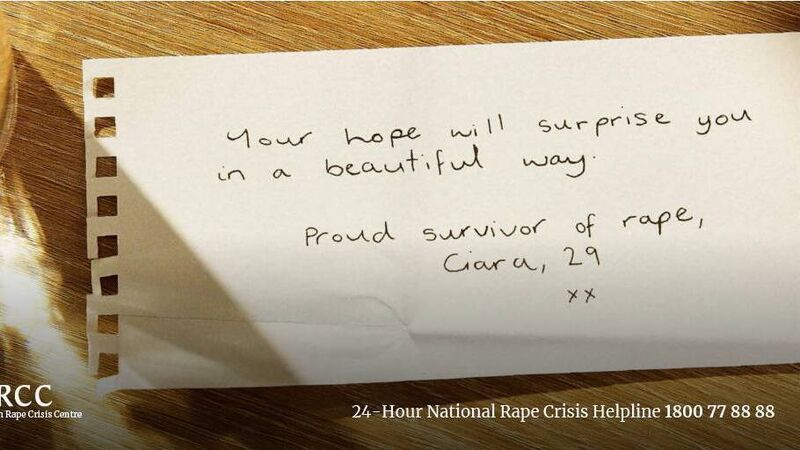 Your hope will surprise you
in a beautiful way.
Proud survivor of rape,
Ciara, 29
xx
RCC
Rape Crisis Centre
24-Hour National Rape Crisis Helpline 1800 77 88 88